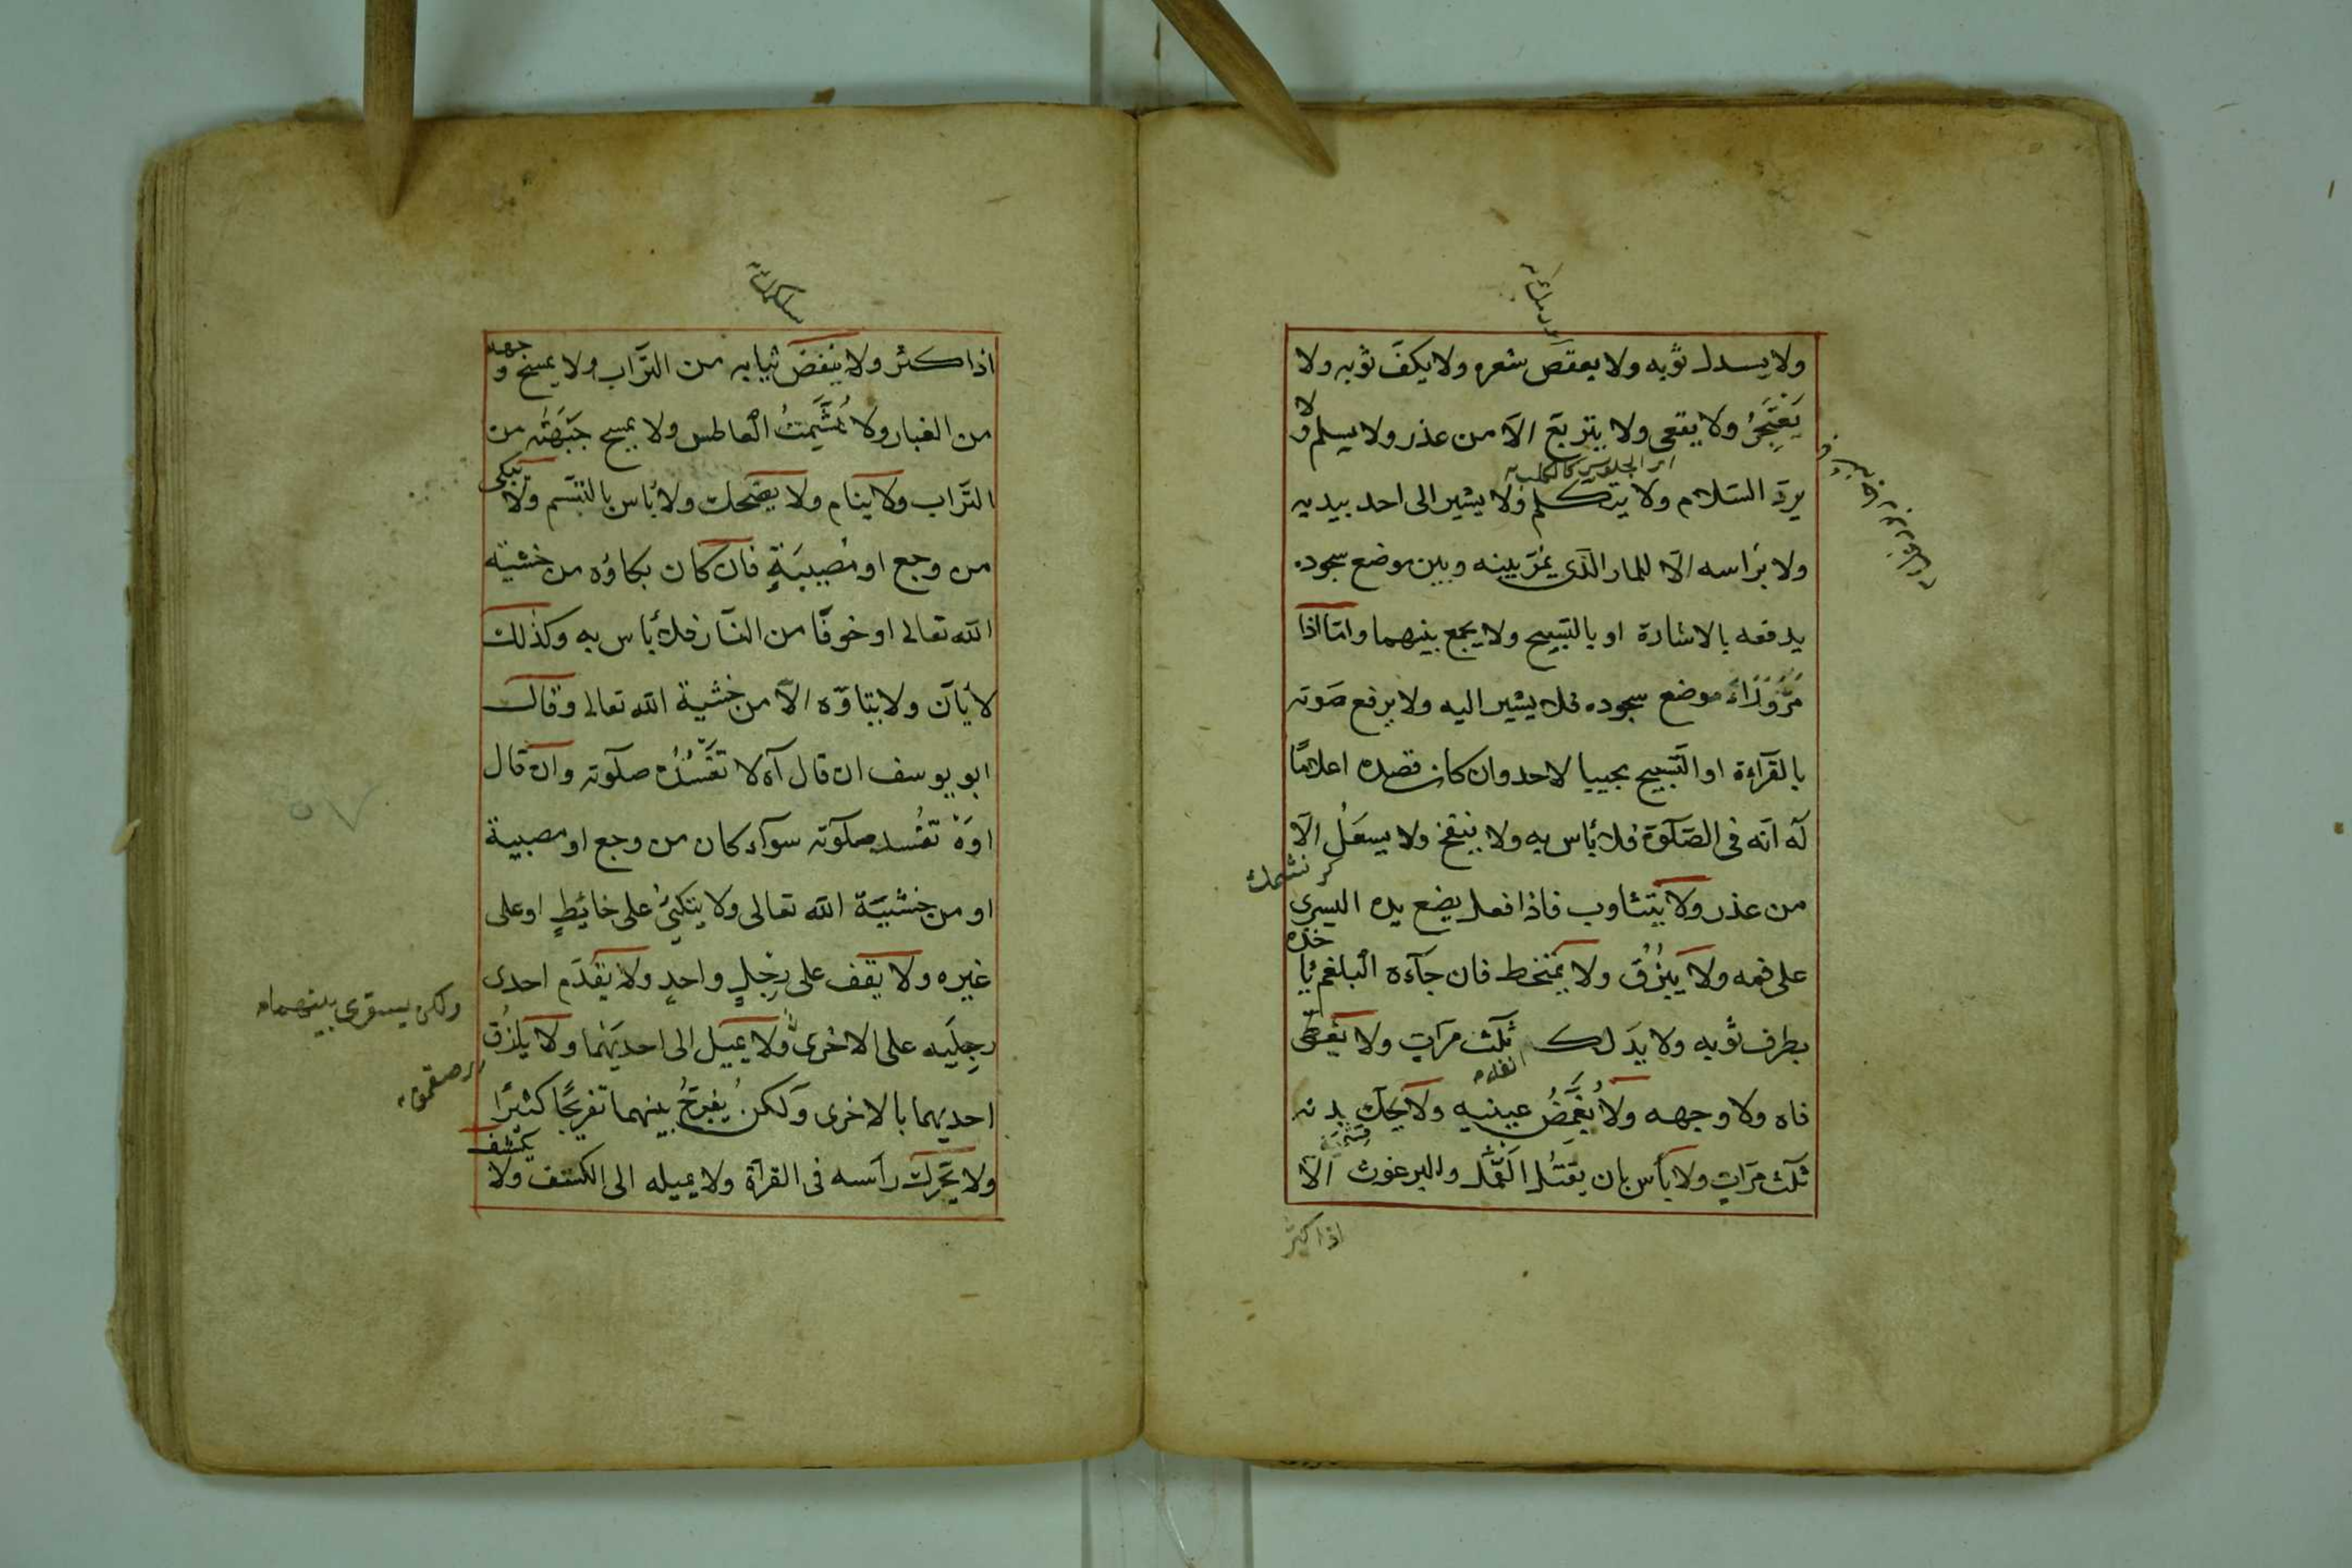 ولا يسدل ثوبه ولا يعقص شعره ولا يكفّ ثوبه ولا
يَعْتَجِرُ ولا يقعى ولا يتربّع الّا من عذر ولا يسلم ولا
اى الجلوس كالكلب
يردّ السّلام ولا يتكلم ولا يشير الى احد بيديه
ولا براسه الّا للمار الّذى يمرّ بينه وبين موضع سجوده
يدفعه بالاشارة او بالتّسبيح ولا يجمع بينهما وامّا اذا
مَرَّ وَرَاءَ موضع سجوده فلا يشير اليه ولا يرفع صَوته
بالقرآءة او التّسبيح بجيبا لاحد وان كان قصده اعلامًا
له انّه فى الصّلوة فلا بأس به ولا ينفخ ولا يسعل الّا
من عذر ولا يتثاوب فاذا فعل يضع يده اليسرى
على فمه ولا يبزُق ولا يمتخط فان جآءه البلغم يأخذه
بطرف ثوبه ولا يدَلك ثلث مرّاتٍ ولا يغطّى
فاه ولا وجهه ولا يُغَمِّضُ عينيه ولا يحكّ بدنه
ثلث مرّاتٍ ولا بأس بان يقتل القمّل والبرغوث الّا
اذا كثر
اذا كثر ولا ينفض ثيابه من التّراب ولا يمسح وجهه
من الغبار ولا يُشَمِّتُ العاطس ولا يمسح جَبْهَته من
التّراب ولا ينام ولا يضحك ولا بأس بالتبسّم ولا يبكى
من وجع او مُصيبَةٍ فان كان بكاؤه من خشية
الله تعالى او خوفًا من النّار فلا بأس به وكذلك
لا يأنّ ولا يتأوّه الّا من خشية الله تعالى وقال
ابو يوسف ان قال آه لا تفسد صلوته وان قال
اوَهْ تفسد صلوته سوآء كان من وجع او مصيبة
او من خشيَة الله تعالى ولا يتكئُ على حائِطٍ او على
غيره ولا يقف على رِجْلٍ واحدٍ ولا يقدّم احدى
ولكن يستوى بينهما
رِجلَيه على الاخرى ولا يميل الى احديهما ولا يلزُق
احديهما بالاخرى ولكن يُفرّجُ بينهما تفريجًا كثيرًا
ولا يحّرك رأسه فى القرآة ولا يميله الى الكتف ولا يكشف